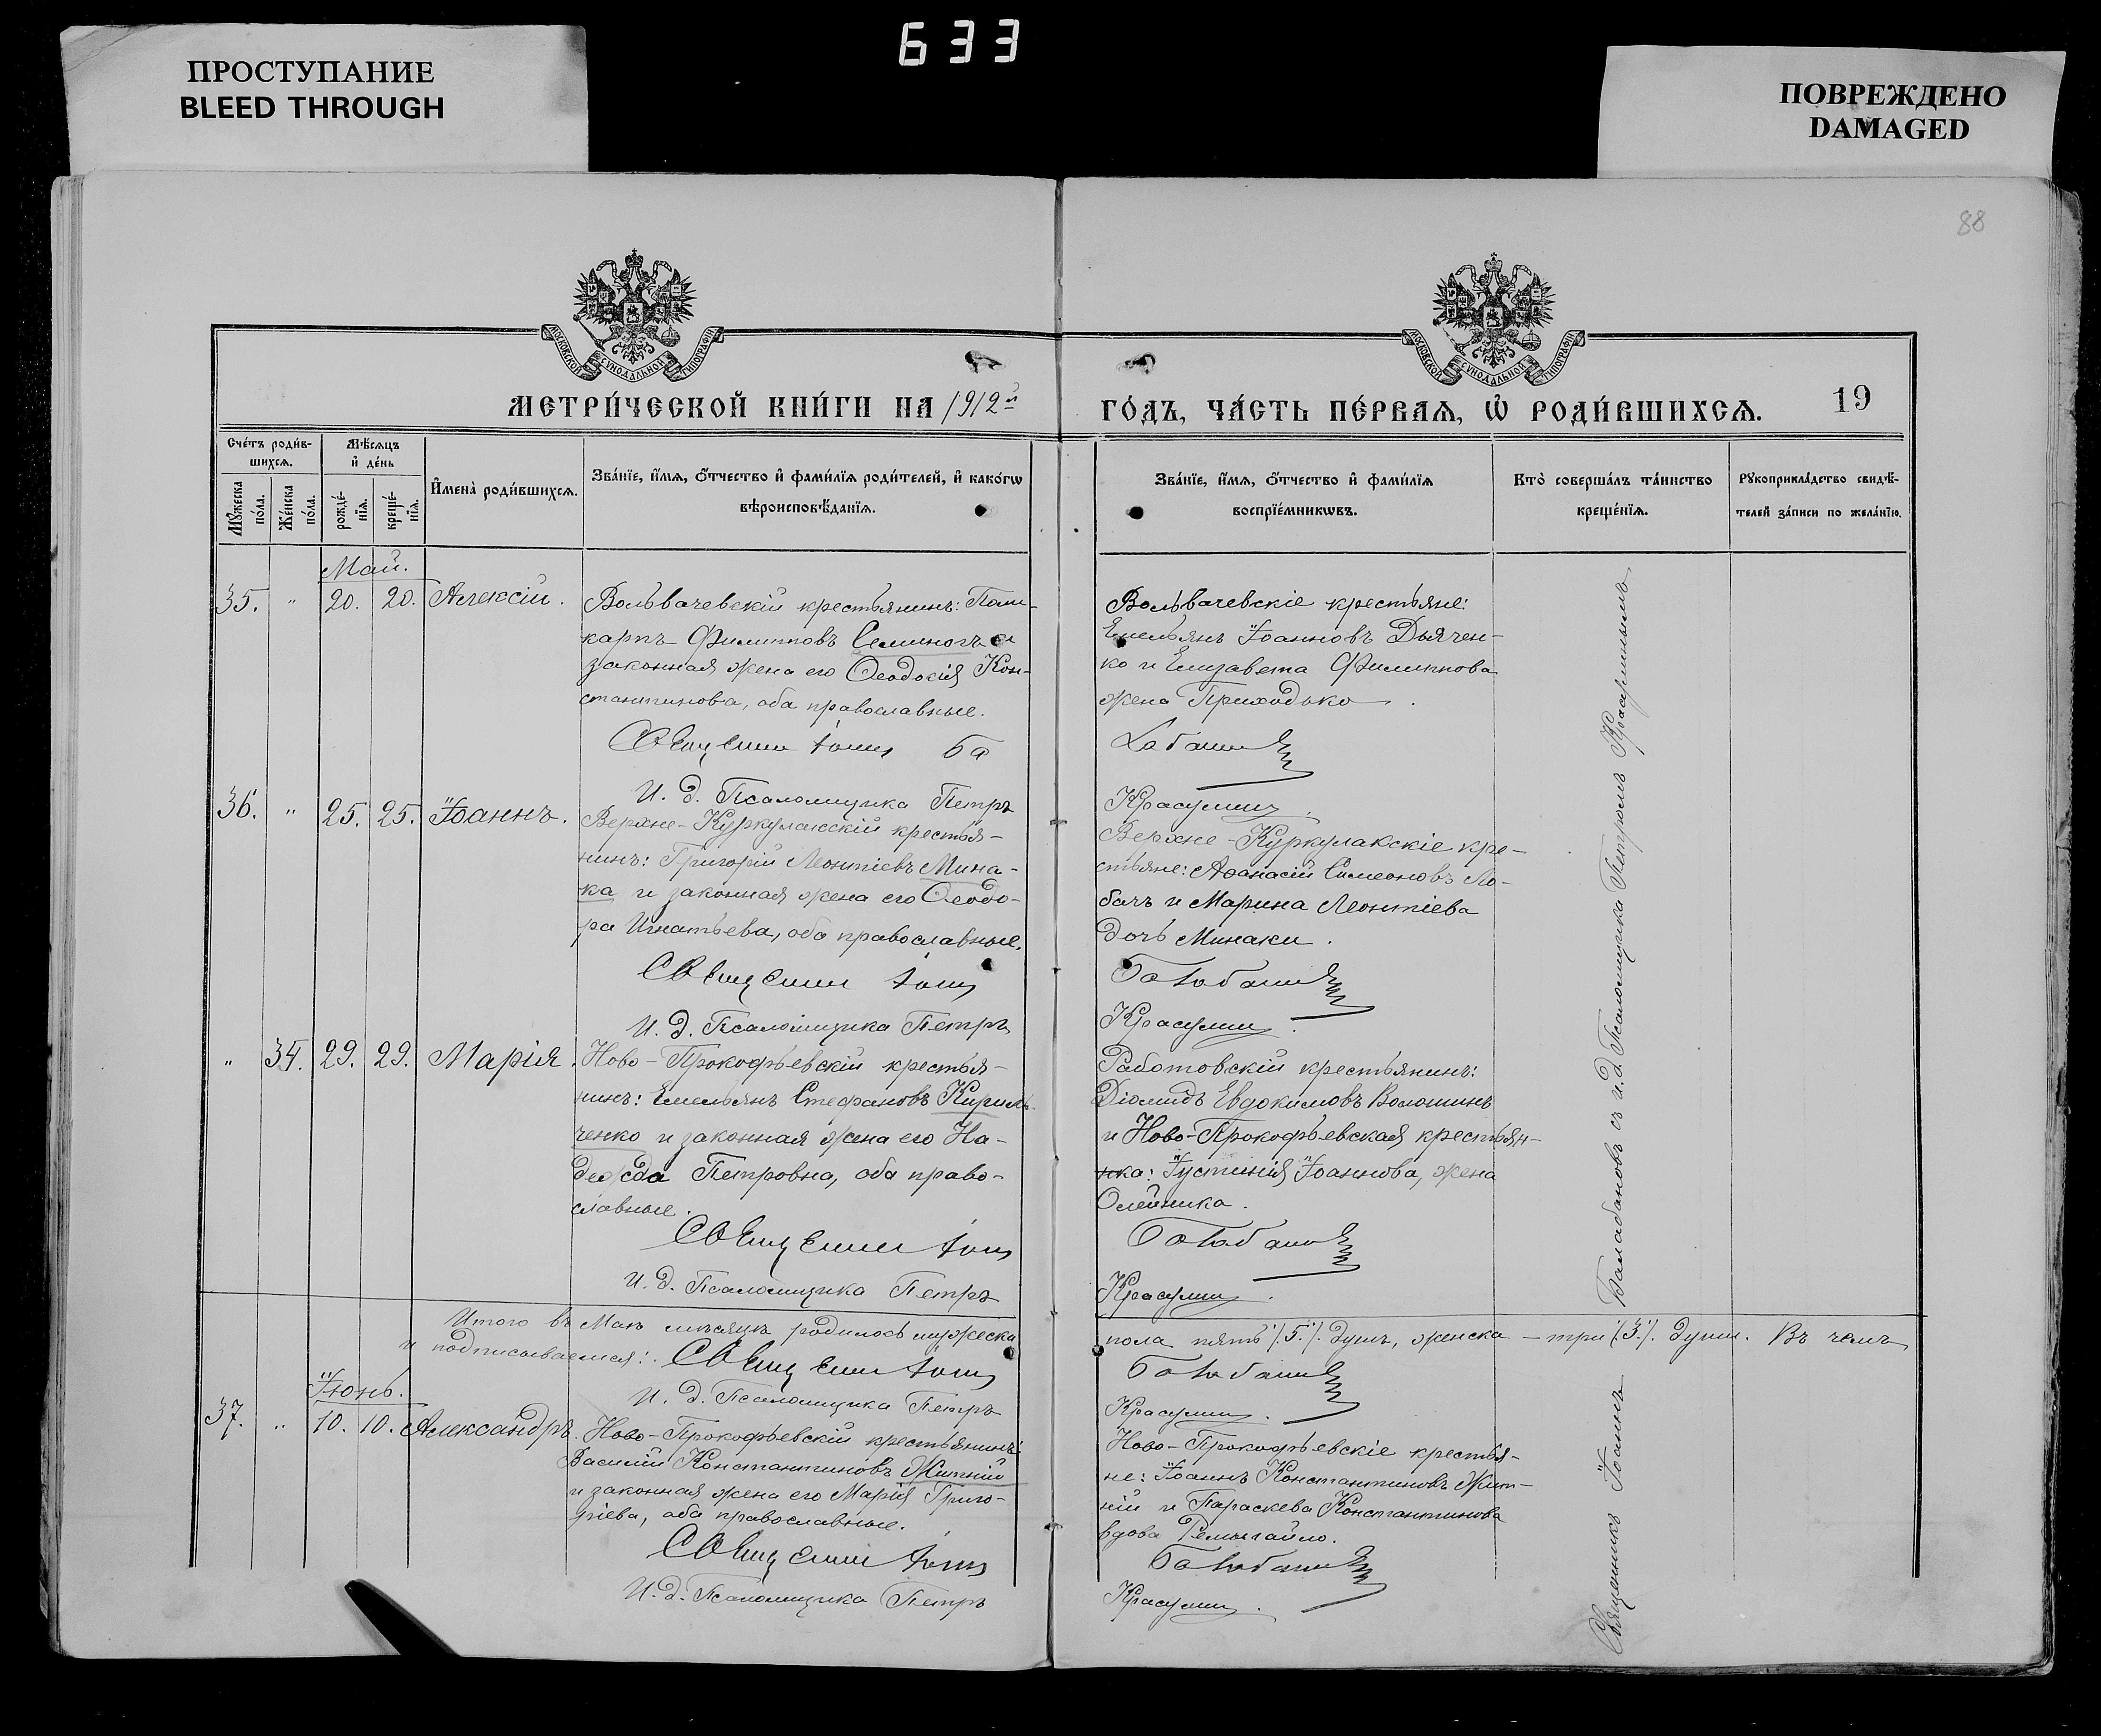 633
ПРОСТУПАНИЕ
BLEED THROUGH
ПОВРЕЖДЕНО
DAMAGED
88
МОСКОВСКОЙ СУНОДАЛЬНОЙ ТИПОГРАФІИ
МОСКОВСКОЙ СУНОДАЛЬНОЙ ТИПОГРАФІИ
МЕТРИ́ЧЕСКОЙ КНИ́ГИ НА 1912й
ГО́ДЪ, ЧА́СТЬ ПЕ́РВАѦ, Ѡ҆ РОДИ́ВШИХСѦ.
19
Сче́тъ роди́в-
шихсѧ.
Мꙋ́жеска по́ла.
Же́нска по́ла.
Мѣ́сѧцъ
и҆ де́нь
рожде́-нїѧ.
креще́-нїѧ.
И҆мена̀ роди́вшихсѧ.
Зва́нїе, и҆́мѧ, ѻ҆́тчество и҆ фами́лїѧ роди́телей, и҆ како́гѡ
вѣроисповѣ́данїѧ.
Зва́нїе, и҆́мѧ, ѻ҆́тчество и҆ фами́лїѧ
воспрїе́мникѡвъ.
Кто̀ соверша́лъ та́инство
креще́нїѧ.
Рꙋкоприкла́дство свидѣ́-
телей за́писи по жела́нїю.
Май.
35. „ 20. 20. Алексій.
Вольвачевскій крестьянинъ: Поли-
карпъ Филипповъ Семиногъ и
законная жена его Ѳеодосія Кон-
стантинова, оба православные.
Священникъ Іоаннъ Ба
И. д. Псаломщика Петръ
Вольвачевскіе крестьяне:
Емельянъ Іоанновъ Дьячен-
ко и Елизавета Филиппова
жена Приходько.
лабановъ
Красулинъ.
36. „ 25. 25. Іоаннъ.
Верхне-Куркулакскій крестья-
нинъ: Григорій Леонтіевъ Мина-
ка и законная жена его Ѳеодо-
ра Игнатьева, оба православные.
Священникъ Іоаннъ
И. д. Псаломщика Петръ
Верхне-Куркулакскіе кре-
стьяне: Аѳанасій Симеоновъ Ло-
бачъ и Марина Леонтіева
дочь Минаки.
Балабановъ
Красулинъ.
„ 34. 29. 29. Марія.
Ново-Прокофьевскій крестья-
нинъ: Емельянъ Стефановъ Кирил-
ченко и законная жена его На-
дежда Петровна, оба право-
славные.
Священникъ Іоаннъ
И. д. Псаломщика Петръ
Работовскій крестьянинъ:
Діомидъ Евдокимовъ Волошинъ
и Ново-Прокофьевская крестьян-
нка: Іустинія Іоаннова, жена
Олейника.
Балабановъ
Красулинъ.
Итого въ Маѣ мѣсяцѣ родилось мужеска
пола пять /.5./. душъ, женска – три /.3./. души. Въ чемъ
и подписываемся: Священникъ Іоаннъ
Балабановъ
И. д. Псаломщика Петръ
Красулинъ.
Іюнь.
37. „ 10. 10. Александръ.
Ново-Прокофьевскій крестьянинъ:
Василій Константиновъ Житній
и законная жена его Марія Григо-
ріева, оба православные.
Священникъ Іоаннъ
И. д. Псаломщика Петръ
Ново-Прокофьевскіе крестья-
не: Іоаннъ Константиновъ Жит-
ній и Параскева Константинова
вдова
Балабановъ
Красулинъ.
Священникъ Іоаннъ Балабановъ съ и. д. Псаломщика Петромъ Красулинымъ